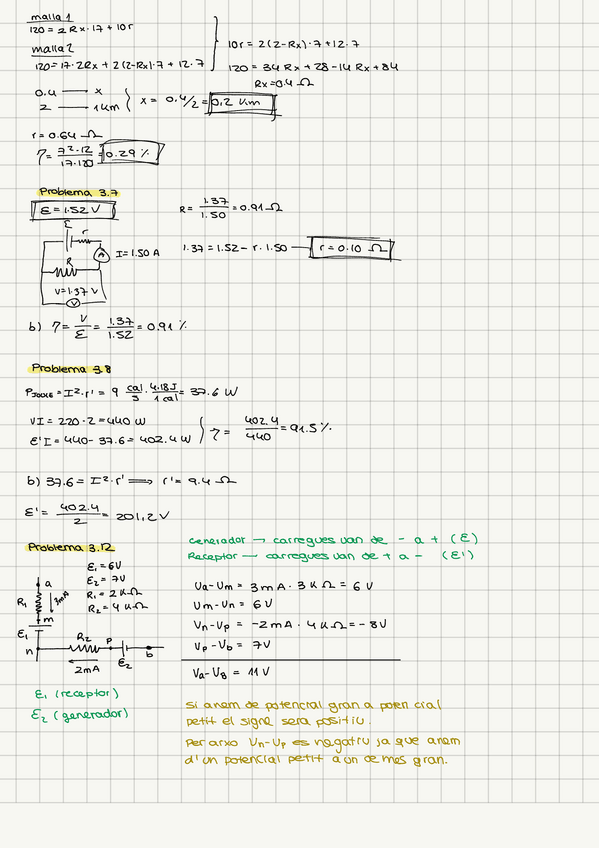 malla 1
120 = 2 Rx · 17 + 10r
malla 2
120 = 17 · 2Rx + 2(2-Rx) · 7 + 12 · 7
10r = 2(2-Rx) · 7 + 12 · 7
120 = 34 Rx + 28 - 14 Rx + 84
Rx = 0.4 Ω
0.4 → x
2 → 1 km
x = 0.4/2 = 0.2 km
r = 0.64 Ω
η = 7² · 12 / 17 · 120 = 0.29 %
Problema 3.7
ε = 1.52 V
R = 1.37 / 1.50 = 0.91 Ω
ε
r
A
I = 1.50 A
R
V = 1.37 V
V
1.37 = 1.52 - r · 1.50 → r = 0.10 Ω
b) η = V / ε = 1.37 / 1.52 = 0.91 %
Problema 3.8
PJOULE = I² · r' = 9 cal / s · 4.18 J / 1 cal = 37.6 W
VI = 220 · 2 = 440 W
ε'I = 440 - 37.6 = 402.4 W
η = 402.4 / 440 = 91.5 %
b) 37.6 = I² · r' ⟹ r' = 9.4 Ω
ε' = 402.4 / 2 = 201,2 V
Problema 3.12
Generador → carregues van de - a + (ε)
Receptor → carregues van de + a - (ε')
ε₁ = 6V
ε₂ = 7V
R₁ = 2 KΩ
R₂ = 4 KΩ
a
R₁
3mA
m
ε₁
n
R₂
p
ε₂
b
2mA
Va - Um = 3 mA · 3 KΩ = 6 V
Um - Un = 6 V
Vn - Vp = -2 mA · 4 KΩ = -8V
Vp - Vb = 7V
Va - VB = 11 V
ε₁ (receptor)
ε₂ (generador)
Si anem de potencial gran a potencial
petit el signe sera positiu.
Per arxo Vn-Vp es negatiu ja que anem
d'un potencial petit a un de mes gran.